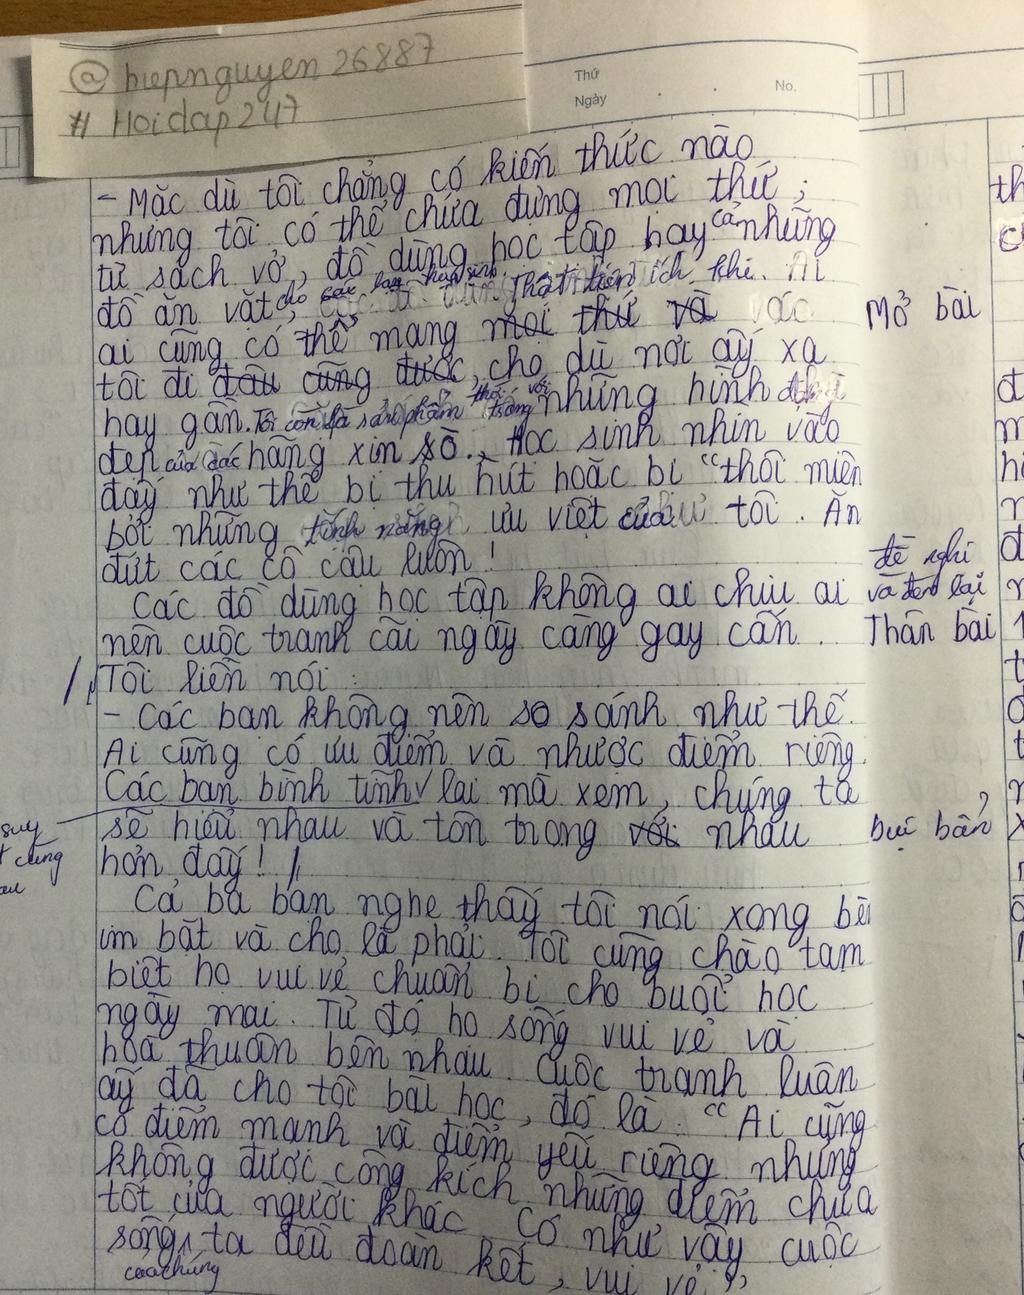 @hiepnguyen26887
# Hoidap247
Thứ
Ngày
No.
- Mặc dù tôi chẳng có kiến thức nào
nhưng tôi có thể chứa đựng mọi thứ,
từ sách vở, đồ dùng học tập hay cả những
đồ ăn vặt, cho các bạn học sinh. Thật tiện ích khi. Ai
ai cũng có thể mang mọi thứ và vác
tôi đi đâu cũng được, cho dù nơi ấy xa
hay gần. Tôi còn là sản phẩm thời trang với những hình
đẹp của các hãng xịn sò. Học sinh nhìn vào
đấy như thể bị thu hút hoặc bị "thôi miên
bởi những tính năng ưu việt của tôi. Ăn
đứt các cô cậu luôn!
Các đồ dùng học tập không ai chịu ai
nên cuộc tranh cãi ngày càng gay cấn.
Tôi liền nói:
- Các bạn không nên so sánh như thế.
Ai cũng có ưu điểm và nhược điểm riêng.
Các bạn bình tĩnh lại mà xem, chúng ta
sẽ hiểu nhau và tôn trọng với nhau
hơn đấy!
Cả ba bạn nghe thấy tôi nói xong bèn
im bặt và cho là phải. Tôi cũng chào tạm
biệt họ vui vẻ chuẩn bị cho buổi học
ngày mai. Từ đó họ sống vui vẻ và
hoà thuận bên nhau. Cuộc tranh luận
ấy đã cho tôi bài học, đó là: "Ai cũng
có điểm mạnh và điểm yếu riêng nhưng
không được công kích những điểm chưa
tốt của người khác. Có như vậy cuộc
sống ta đều đoàn kết, vui vẻ"
của chúng
Mở bài
đề nghị
Thân bài
suy